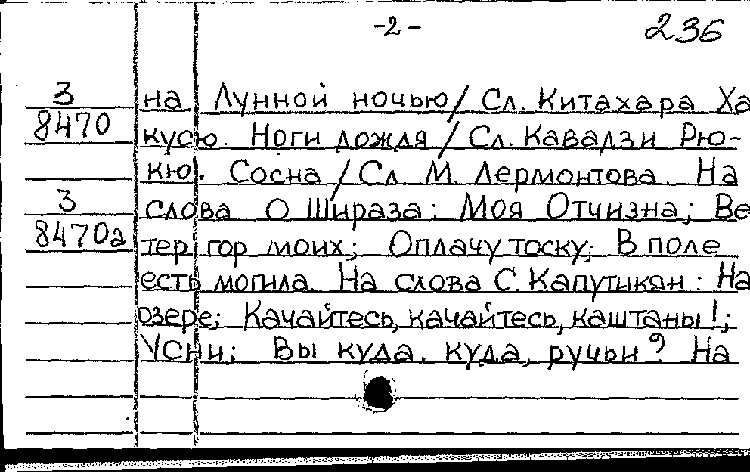 -2- 236
3 на Лунной ночью / Сл. Китахара Ха
8470 кусю. Ноги дождя / Сл. Кавадзи Рю-
кю. Сосна / Сл. М. Лермонтова. На
3 слова О Шираза: Моя Отчизна; Ве
8470а тер гор моих; Оплачу тоску; В поле
есть могила. На слова С. Капутикян: На
озере; Качайтесь, качайтесь, каштаны!;
Усни; Вы куда, куда, ручьи? На